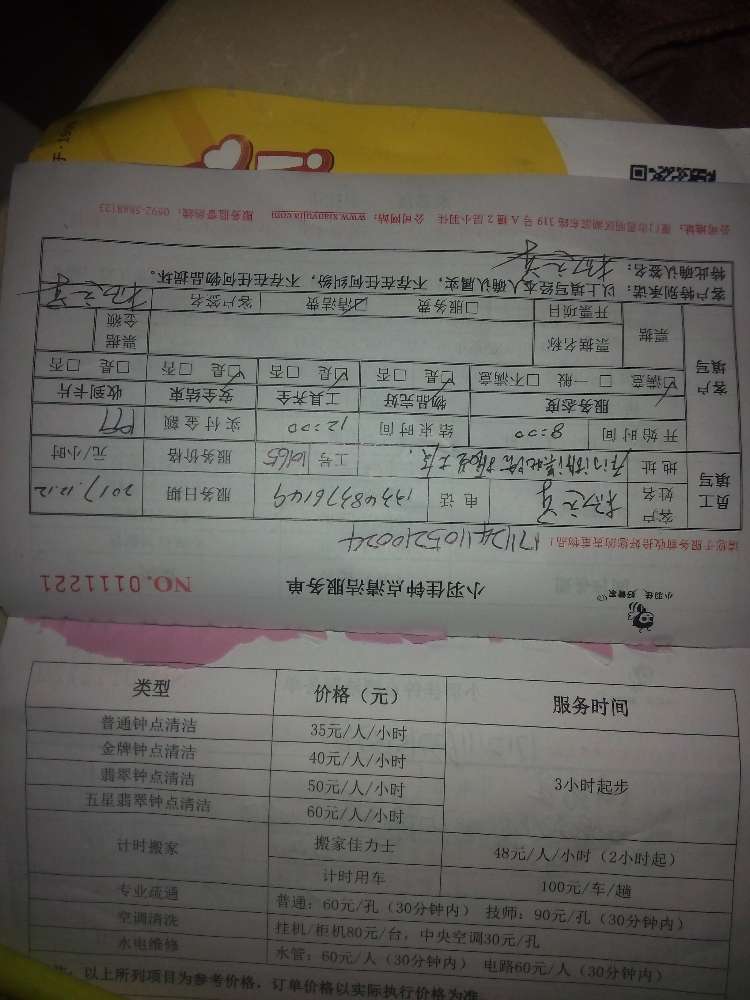 小羽佳 好管家
小羽佳钟点清洁服务单 NO. 0111221
171241105210024
请您于服务前收拾好您的贵重物品!
员工填写
客户姓名 电话 13348376149 服务日期 2017.12.12
地址 工号 10165 服务价格 元/小时
开始时间 8:00 结束时间 12:00 实付金额
客户填写
服务态度 物品完好 工具齐全 安全结束 收到卡片
☑满意 □一般 □不满意 ☑是 □否 ☑是 □否 ☑是 □否 □是 □否
票据 票据名称 票据金额
开票项目 □服务费 ☑清洁费 客户签名
客户特别承诺:以上填写经本人确认属实,不存在任何纠纷,不存在任何物品损坏。
特此确认签名:
公司地址:厦门市思明区湖滨东路 319 号 A 幢 2 层小羽佳 公司网站:www.xiaoyujia.com 服务监督热线:0592-5888123
类型 价格(元) 服务时间
普通钟点清洁 35元/人/小时
金牌钟点清洁 40元/人/小时
翡翠钟点清洁 50元/人/小时
五星翡翠钟点清洁 60元/人/小时
3小时起步
计时搬家 搬家佳力士 48元/人/小时(2小时起)
计时用车 100元/车/趟
专业疏通 普通:60元/孔(30分钟内) 技师:90元/孔(30分钟内)
空调清洗 挂机/柜机80元/台,中央空调30元/孔
水电维修 水管:60元/人(30分钟内) 电路60元/人(30分钟内)
以上所列项目为参考价格,订单价格以实际执行价格为准